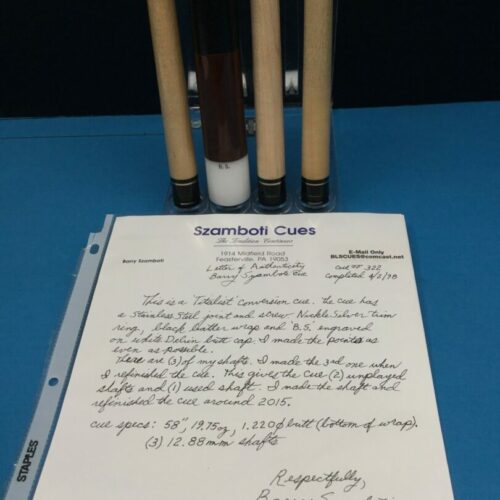 B.S.
Szamboti Cues
The Tradition Continues
1914 Midfield Road
Feasterville, PA 19053
Barry Szamboti
E-Mail Only
BLSCUES@comcast.net
Letter of Authenticity
Barry Szamboti Cue
Cue # 322
Completed 4/2/98
This is a Titelist Conversion cue. The cue has
a Stainless Steel joint and screw, Nickle Silver trim
ring, black leather wrap and "B.S. engraved
on white Delrin butt cap. I made the points as
even as possible.
There are (3) of my shafts. I made the 3rd one when
I refinished the cue. This gives the cue (2) unplayed
shafts and (1) used shaft. I made the shaft and
refinished the cue around 2015.
cue specs: 58", 19.75oz, 1.220∅ butt (bottom of wrap).
(3) 12.88mm shafts
Respectfully,
Barry
STAPLES